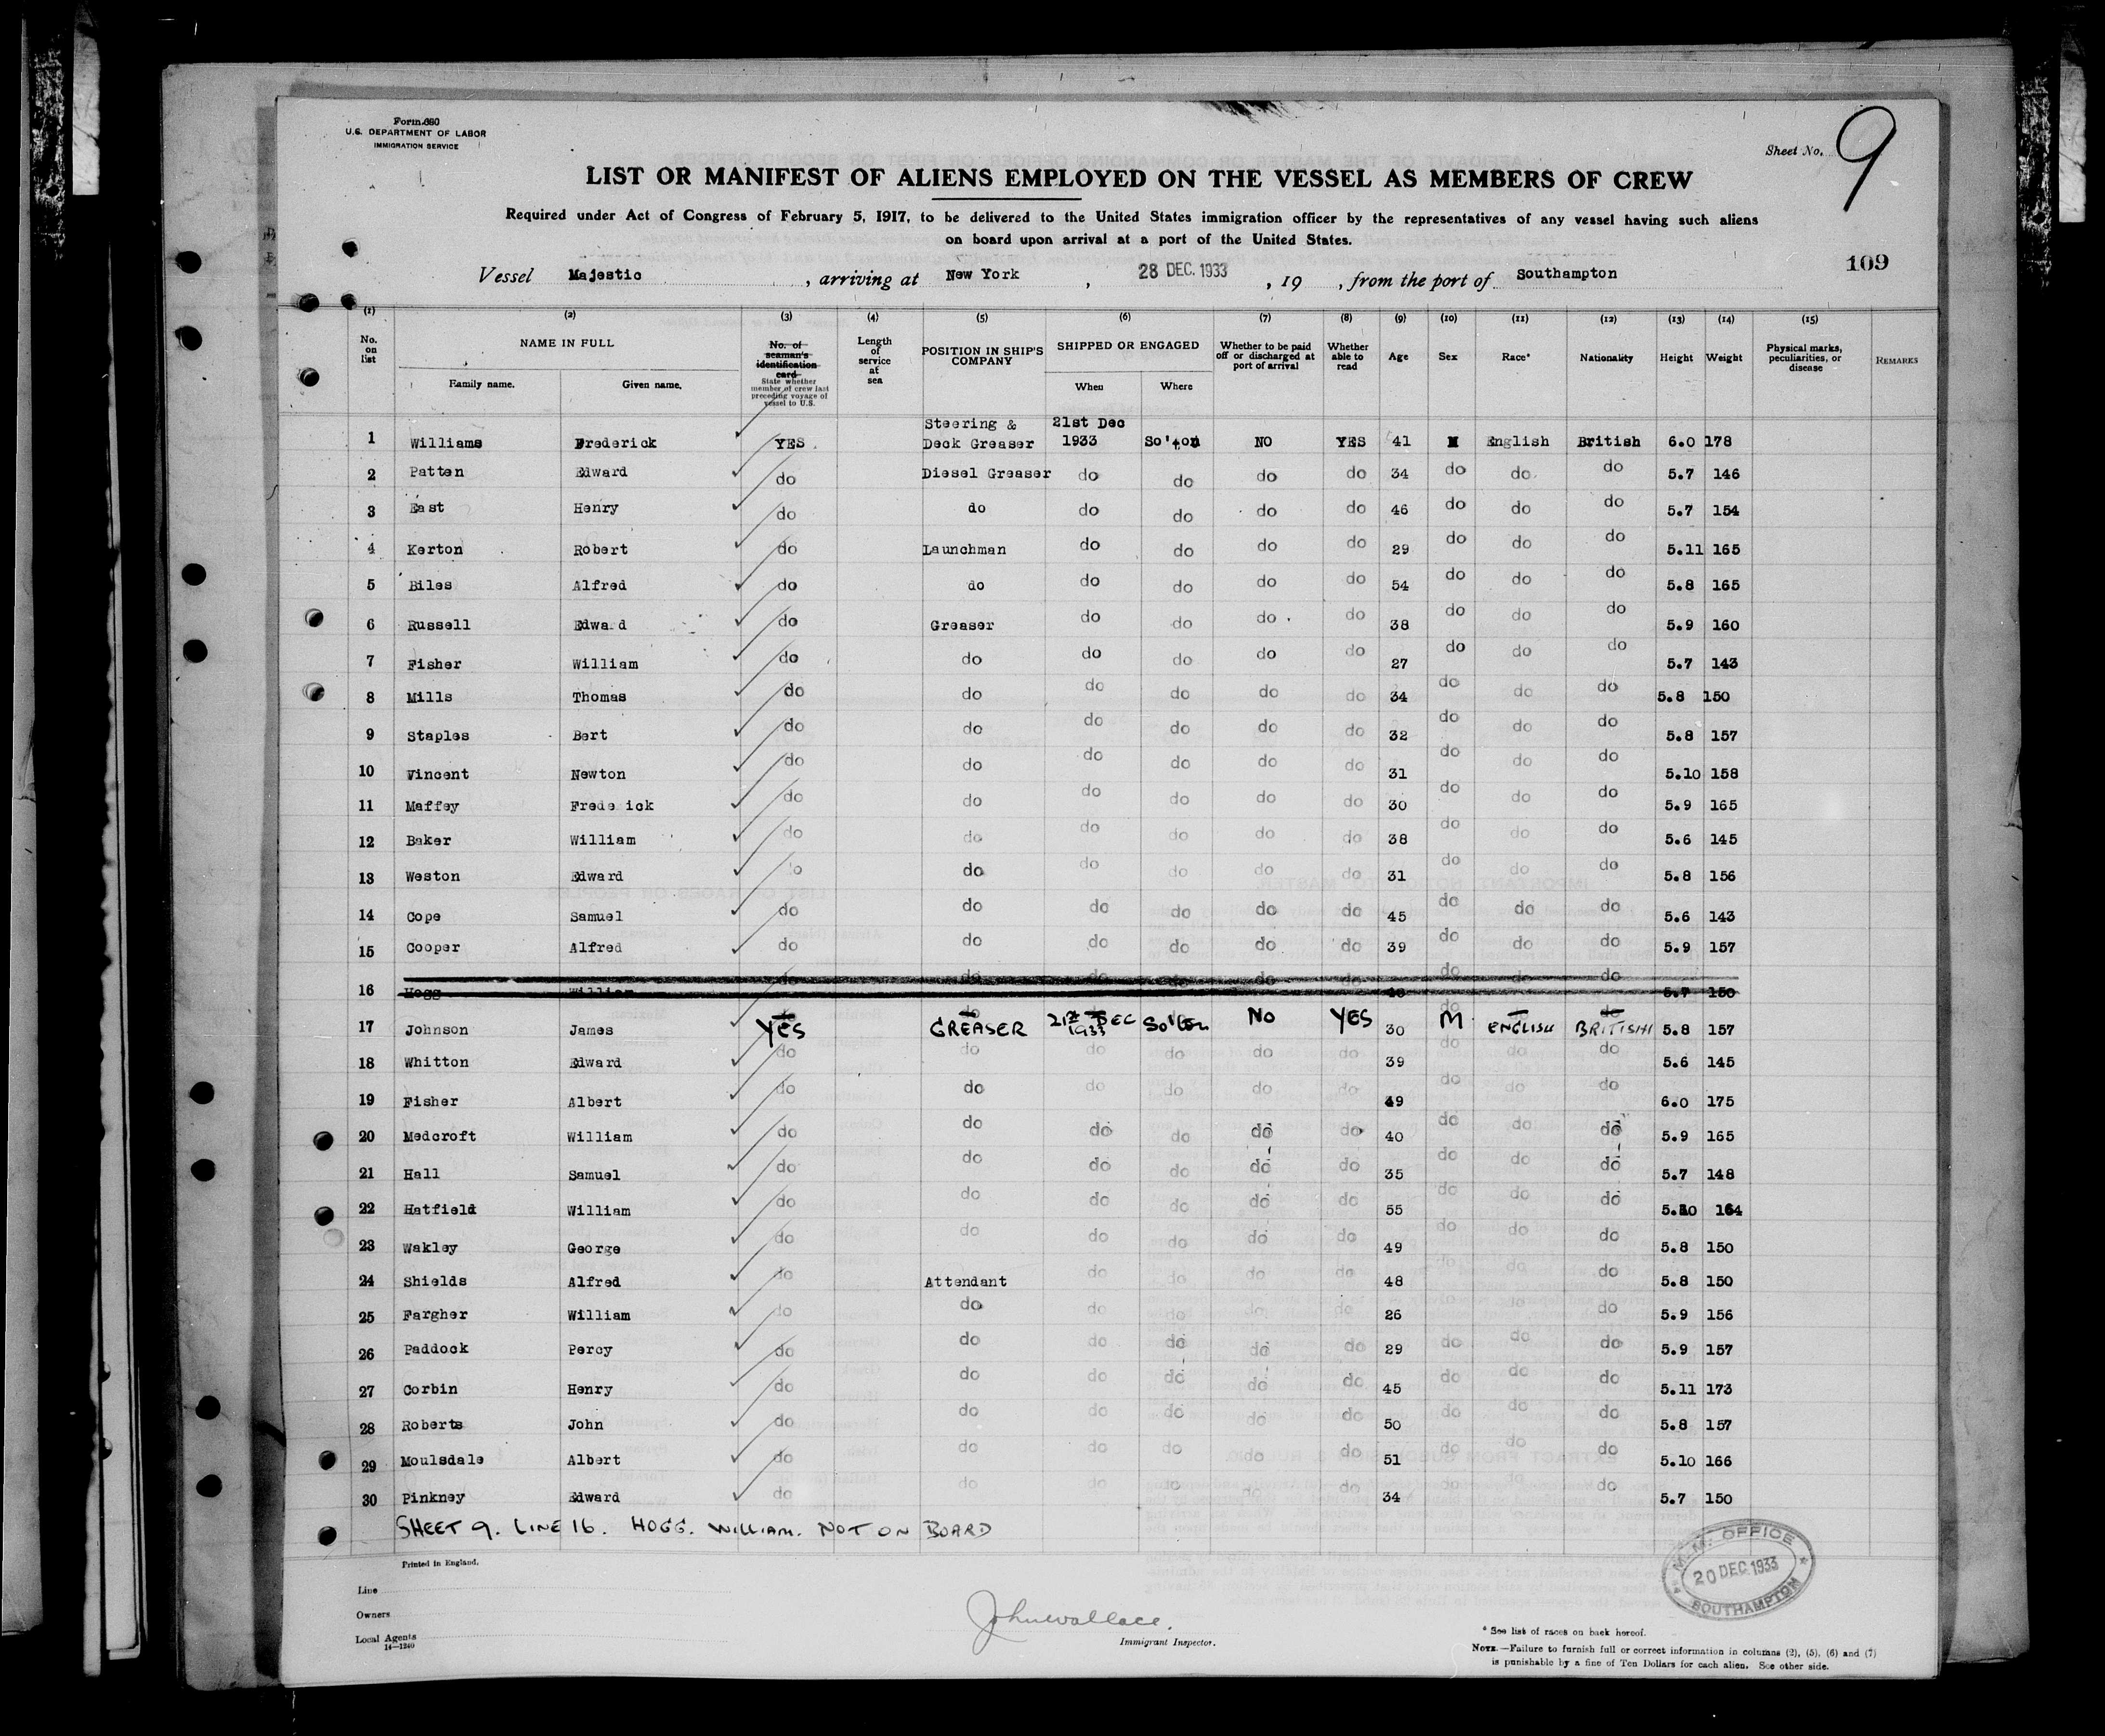 Form 680
U.S. DEPARTMENT OF LABOR
IMMIGRATION SERVICE
Sheet No. 9
LIST OR MANIFEST OF ALIENS EMPLOYED ON THE VESSEL AS MEMBERS OF CREW
Required under Act of Congress of February 5, 1917, to be delivered to the United States immigration officer by the representatives of any vessel having such aliens
on board upon arrival at a port of the United States.
109
Vessel Majestic, arriving at New York, 28 DEC. 1933, 19 , from the port of Southampton
(1) (2) (3) (4) (5) (6) (7) (8) (9) (10) (11) (12) (13) (14) (15)
No. on list NAME IN FULL Family name. Given name. No. of seaman's identification card State whether member of crew last preceding voyage of vessel to U.S. Length of service at sea POSITION IN SHIP'S COMPANY SHIPPED OR ENGAGED When Where Whether to be paid off or discharged at port of arrival Whether able to read Age Sex Race* Nationality Height Weight Physical marks, peculiarities, or disease REMARKS
1 Williams Frederick YES Steering & Deck Greaser 21st Dec 1933 So'ton NO YES 41 M English British 6.0 178
2 Patten Edward do Diesel Greaser do do do do 34 do do do 5.7 146
3 East Henry do do do do do do 46 do do do 5.7 154
4 Kerton Robert do Launchman do do do do 29 do do do 5.11 165
5 Biles Alfred do do do do do do 54 do do do 5.8 165
6 Russell Edwa d do Greaser do do do do 38 do do do 5.9 160
7 Fisher William do do do do do do 27 do do do 5.7 143
8 Mills Thomas do do do do do do 34 do do do 5.8 150
9 Staples Bert do do do do do do 32 do do do 5.8 157
10 Vincent Newton do do do do do do 31 do do do 5.10 158
11 Maffey Frede ick do do do do do do 30 do do do 5.9 165
12 Baker William do do do do do do 38 do do do 5.6 145
13 Weston Edward do do do do do do 31 do do do 5.8 156
14 Cope Samuel do do do do do do 45 do do do 5.6 143
15 Cooper Alfred do do do do do do 39 do do do 5.9 157
16 Hogg William do do do do do do do do do 5.7 150
17 Johnson James YES GREASER 21st DEC 1933 So'ton NO YES 30 M ENGLISH BRITISH 5.8 157
18 Whitton Edward do do do do do do 39 do do do 5.6 145
19 Fisher Albert do do do do do do 49 do do do 6.0 175
20 Medcroft William do do do do do do 40 do do do 5.9 165
21 Hall Samuel do do do do do do 35 do do do 5.7 148
22 Hatfield William do do do do do do 55 do do do 5.10 164
23 Wakley George do do do do do do 49 do do do 5.8 150
24 Shields Alfred do Attendant do do do do 48 do do do 5.8 150
25 Fargher William do do do do do do 26 do do do 5.9 156
26 Paddock Percy do do do do do do 29 do do do 5.9 157
27 Corbin Henry do do do do do do 45 do do do 5.11 173
28 Roberts John do do do do do do 50 do do do 5.8 157
29 Moulsdale Albert do do do do do do 51 do do do 5.10 166
30 Pinkney Edward do do do do do do 34 do do do 5.7 150
SHEET 9. LINE 16. HOGG. WILLIAM. NOT ON BOARD
Printed in England.
Line
Owners
Local Agents
14—1240
John Wallace.
Immigrant Inspector.
M.M. OFFICE
20 DEC 1933
SOUTHAMPTON
* See list of races on back hereof.
NOTE.—Failure to furnish full or correct information in columns (2), (5), (6) and (7)
is punishable by a fine of Ten Dollars for each alien. See other side.